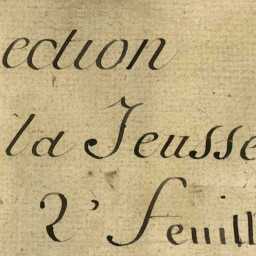 ection
la Jeusse
2' feuill